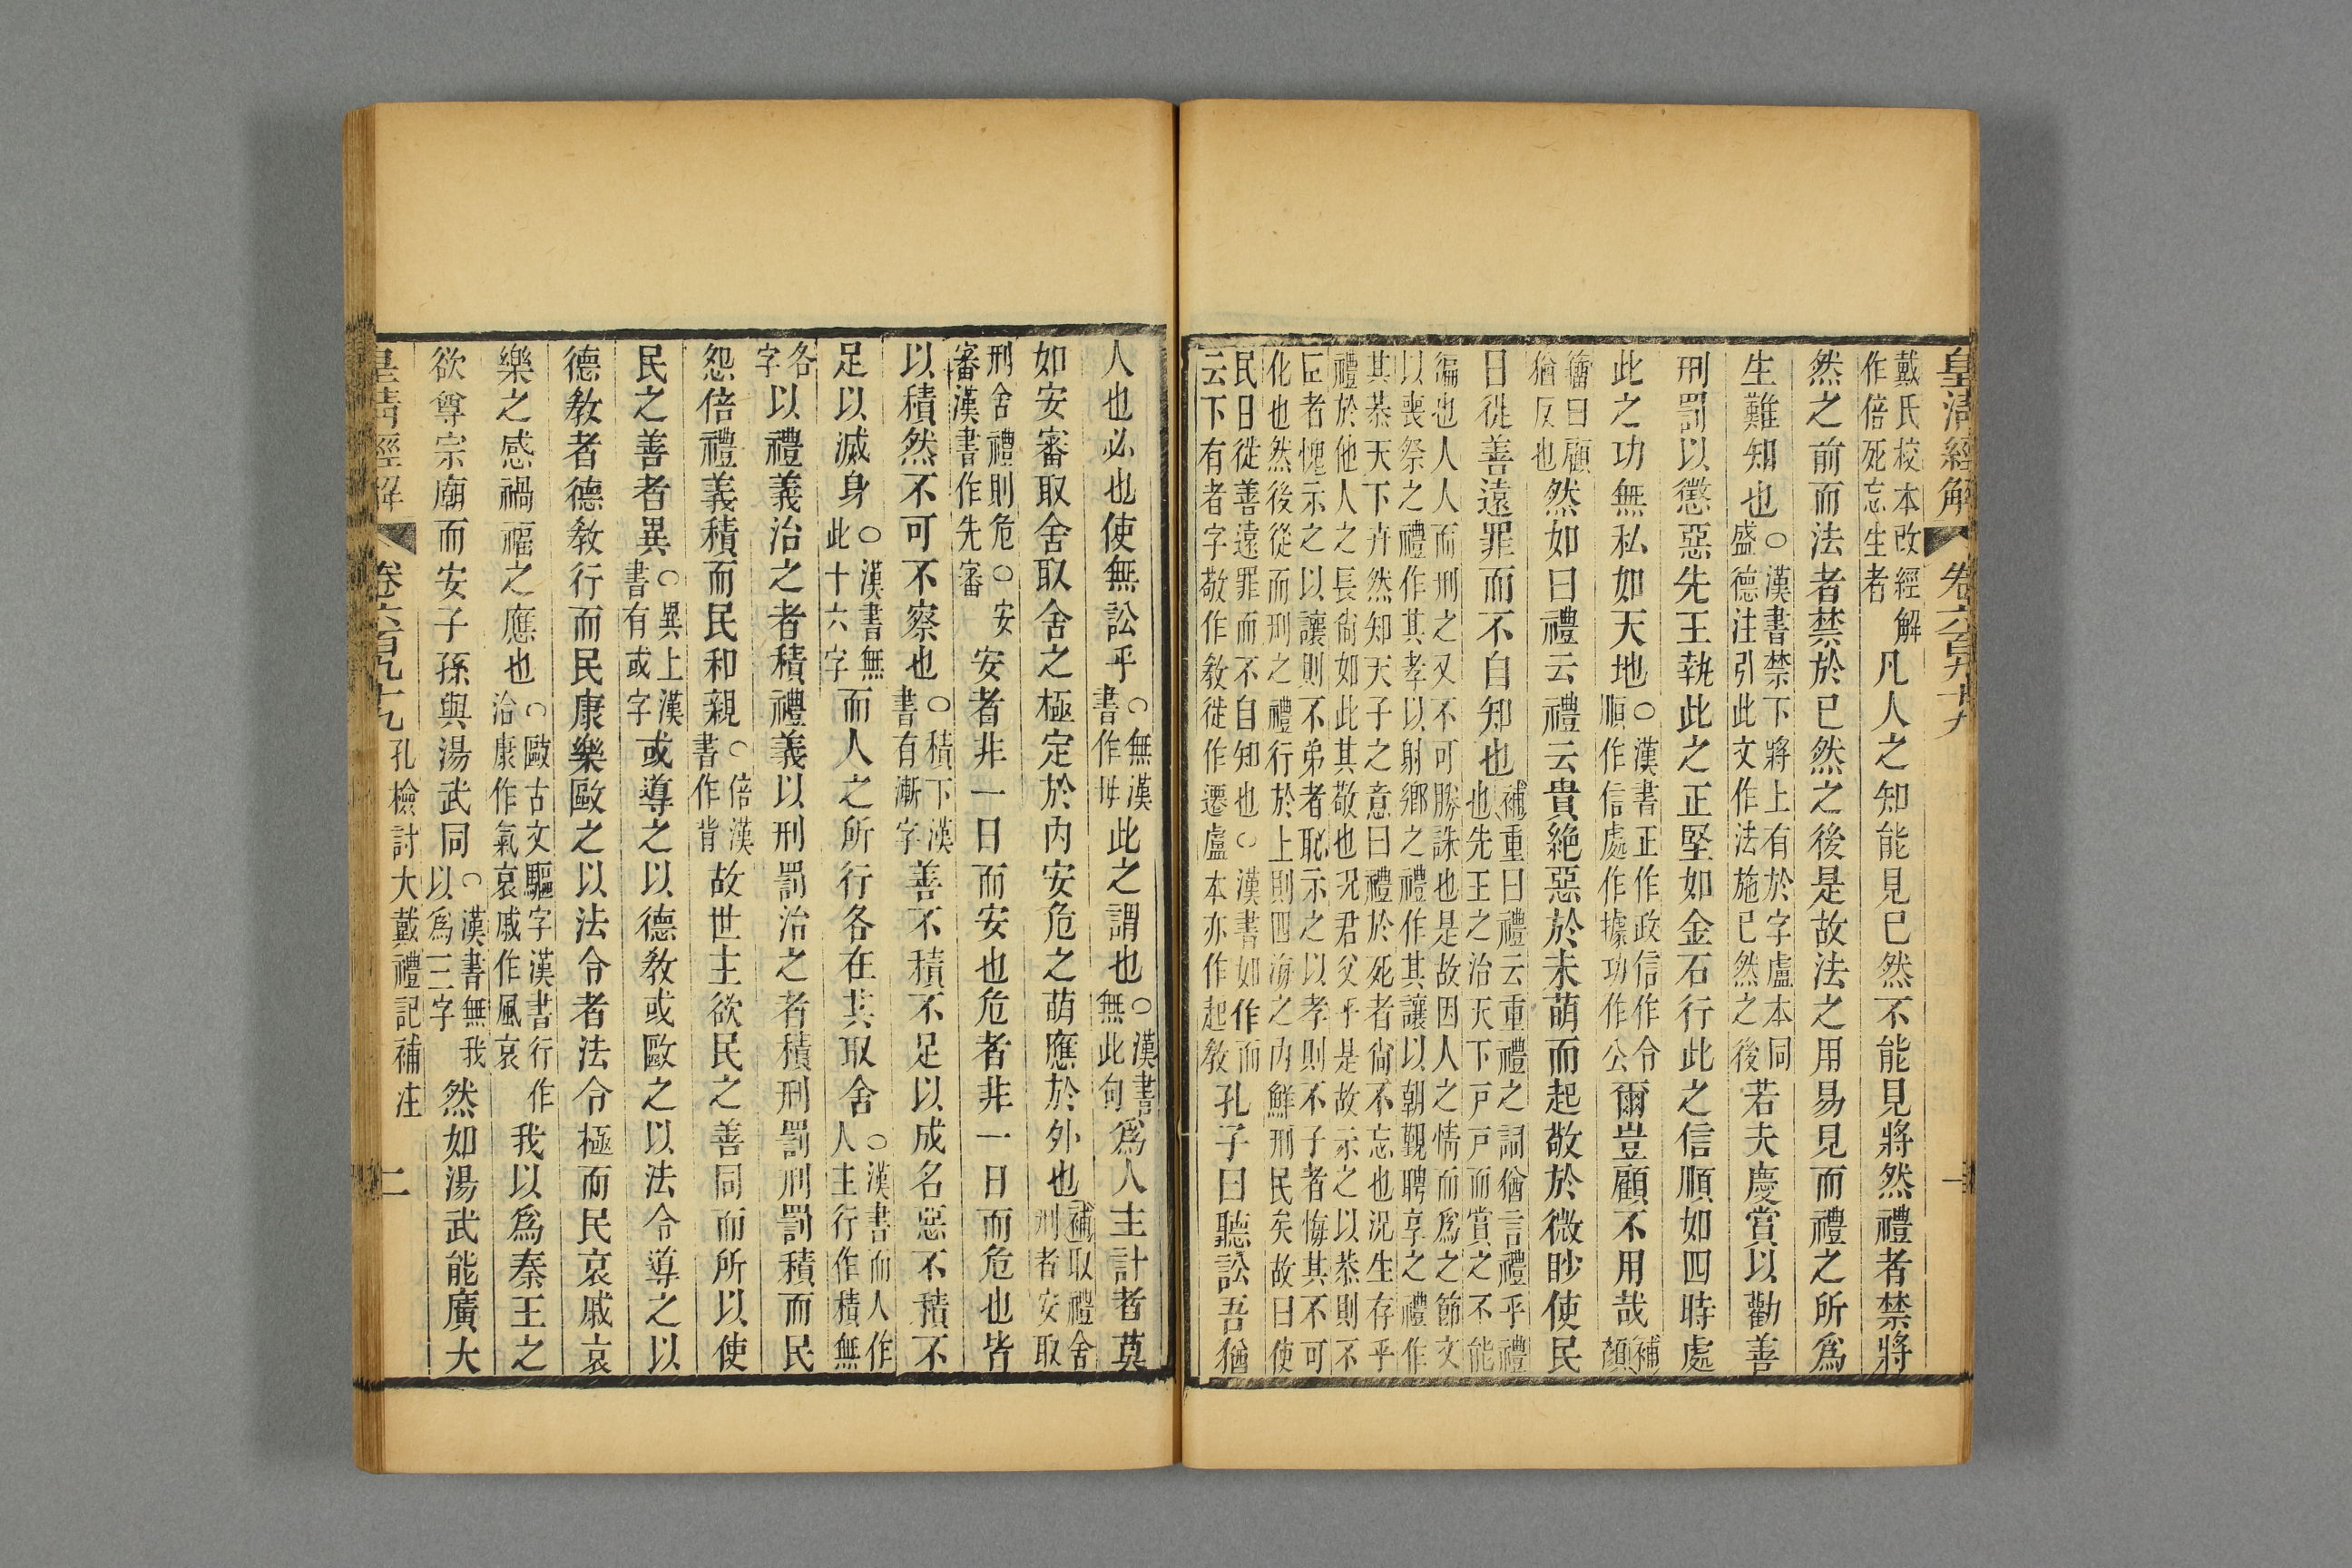 皇清經解 卷六百九十九 一
戴氏校本改經解作倍死忘生者凡人之知能見已然不能見將然禮者禁將
然之前而法者禁於已然之後是故法之用易見而禮之所爲
生難知也○漢書禁下將上有於字盧本同盛德注引此文作法施已然之後若夫慶賞以勸善
刑罰以懲惡先王執此之正堅如金石行此之信順如四時處
此之功無私如天地○漢書正作政信作令順作信處作據功作公爾豈顧不用哉補顏
籒曰顧猶反也然如曰禮云禮云貴絶惡於未萌而起敬於微眇使民
日徙善遠罪而不自知也補重曰禮云重禮之詞猶言禮乎禮也先王之治天下戶戶而賞之不能
徧也人人而刑之又不可勝誅也是故因人之情而爲之節文以喪祭之禮作其孝以射鄉之禮作其讓以朝覲聘享之禮作
其恭天下卉然知天子之意曰禮於死者尙不忘也況生存乎禮於他人之長尙如此其敬也況君父乎是故示之以恭則不
臣者愧示之以讓則不弟者恥示之以孝則不子者悔其不可化也然後從而刑之禮行於上則四海之內鮮刑民矣故曰使
民日徙善遠罪而不自知也○漢書如作而云下有者字敬作敎徙作遷盧本亦作起敎孔子曰聽訟吾猶
人也必也使無訟乎○無漢書作毋此之謂也○漢書無此句爲人主計者莫
如安審取舍取舍之極定於內安危之萌應於外也補取禮舍刑者安取
刑舍禮則危○安審漢書作先審安者非一日而安也危者非一日而危也皆
以積然不可不察也○積下漢書有漸字善不積不足以成名惡不積不
足以滅身○漢書無此十六字而人之所行各在其取舍○漢書而人作人主行作積無
各字以禮義治之者積禮義以刑罰治之者積刑罰刑罰積而民
怨倍禮義積而民和親○倍漢書作背故世主欲民之善同而所以使
民之善者異○異上漢書有或字或導之以德敎或歐之以法令導之以
德敎者德敎行而民康樂歐之以法令者法令極而民哀戚哀
樂之感禍福之應也○歐古文驅字漢書行作洽康作氣哀戚作風哀我以爲秦王之
欲尊宗廟而安子孫與湯武同○漢書無我以爲三字然如湯武能廣大
皇清經解 卷六百九十九 孔檢討大戴禮記補注 二